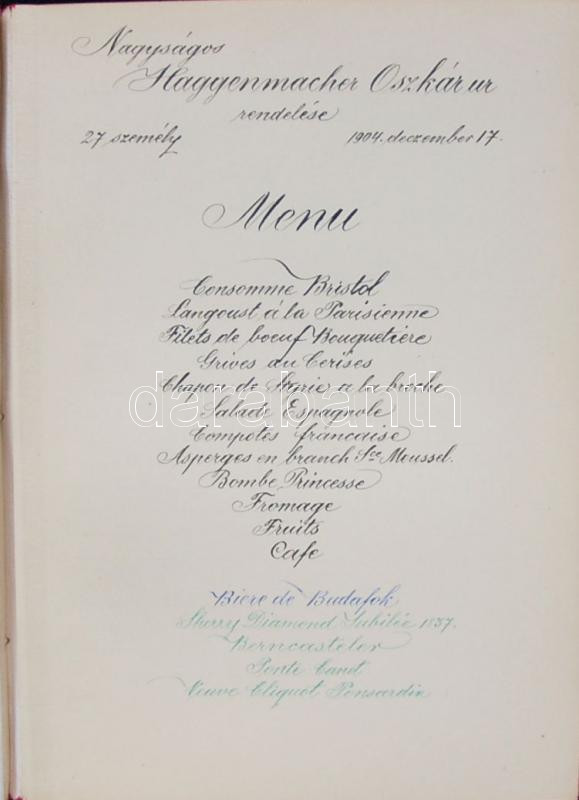 Nagyságos
Haggenmacher Oszkár ur
rendelése
27 személy 1904. deczember 17.
Menu
Consomme Bristol
Langoust á la Parisienne
Filets de boeuf Bouquetière
Grives au Cerises
Chapon de Styrie a la broche
Salade Espagnole
Compotes francaise
Asperges en branch Sce Moussel.
Bombe Princesse
Fromage
Fruits
Cafe
Biere de Budafok
Sherry Diamond Jubilée 1837.
Berncasteler
Ponte Canet
Veuve Cliquot Ponsardin
darabanth